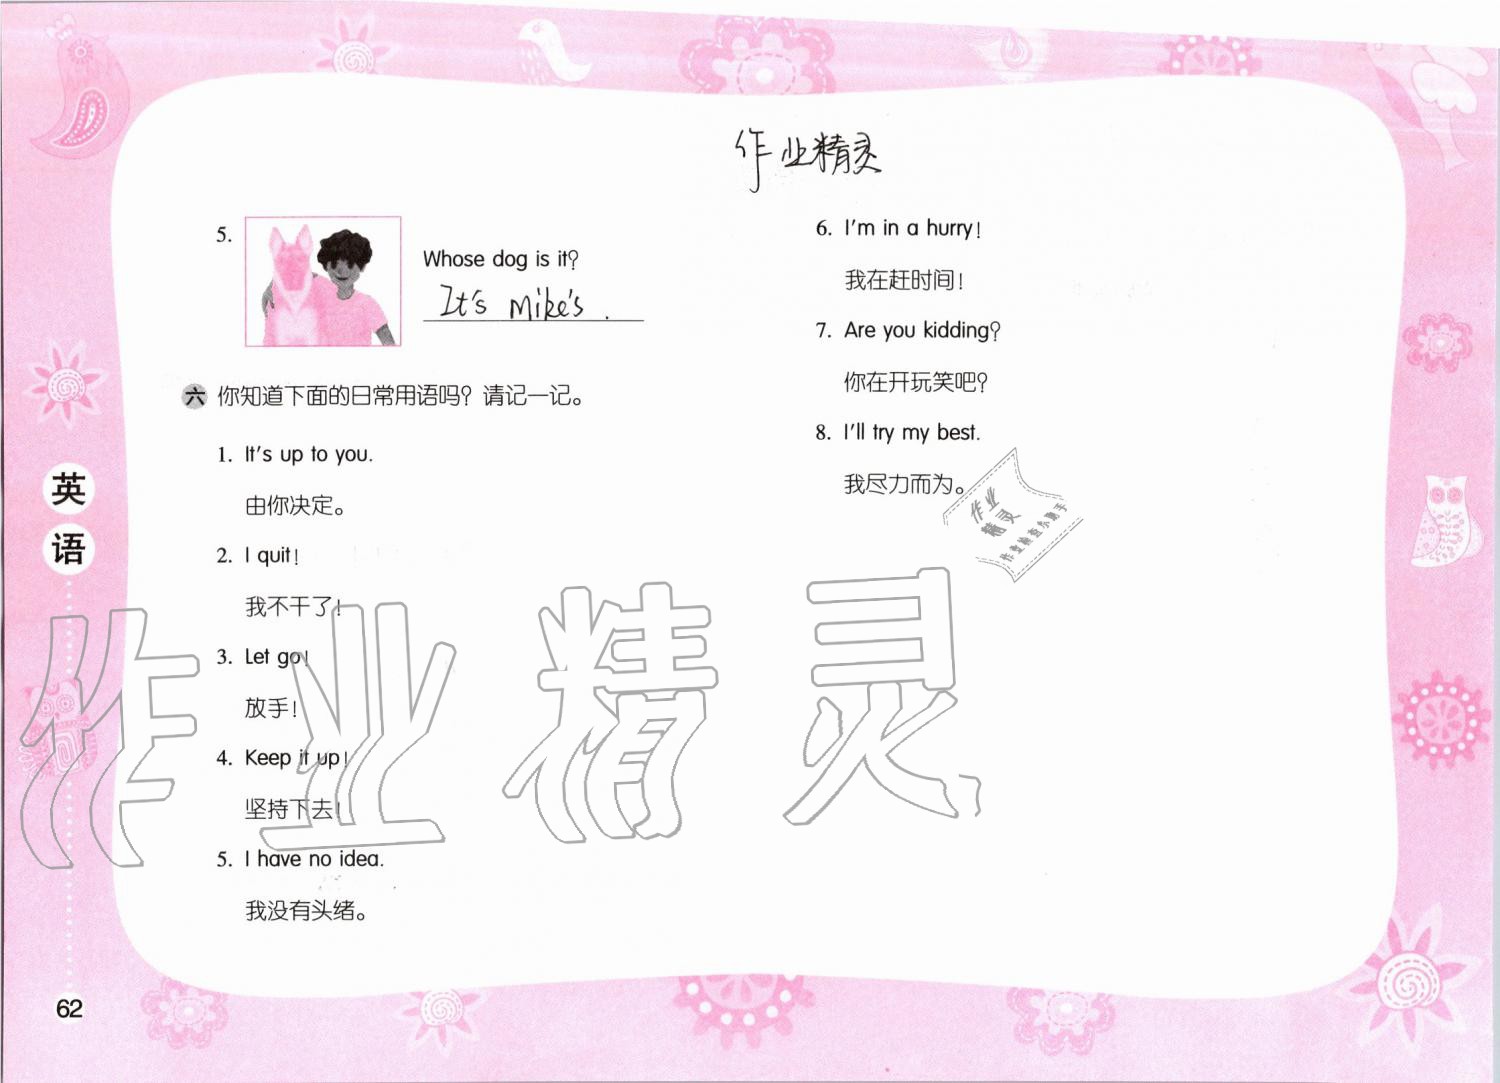 作业精灵
5.
Whose dog is it?
It's Mike's.
六 你知道下面的日常用语吗？请记一记。
1. It's up to you.
由你决定。
2. I quit!
我不干了！
3. Let go!
放手！
4. Keep it up!
坚持下去！
5. I have no idea.
我没有头绪。
6. I'm in a hurry!
我在赶时间！
7. Are you kidding?
你在开玩笑吧？
8. I'll try my best.
我尽力而为。
作业
精灵
作业检查小助手
作业精灵
英语
62